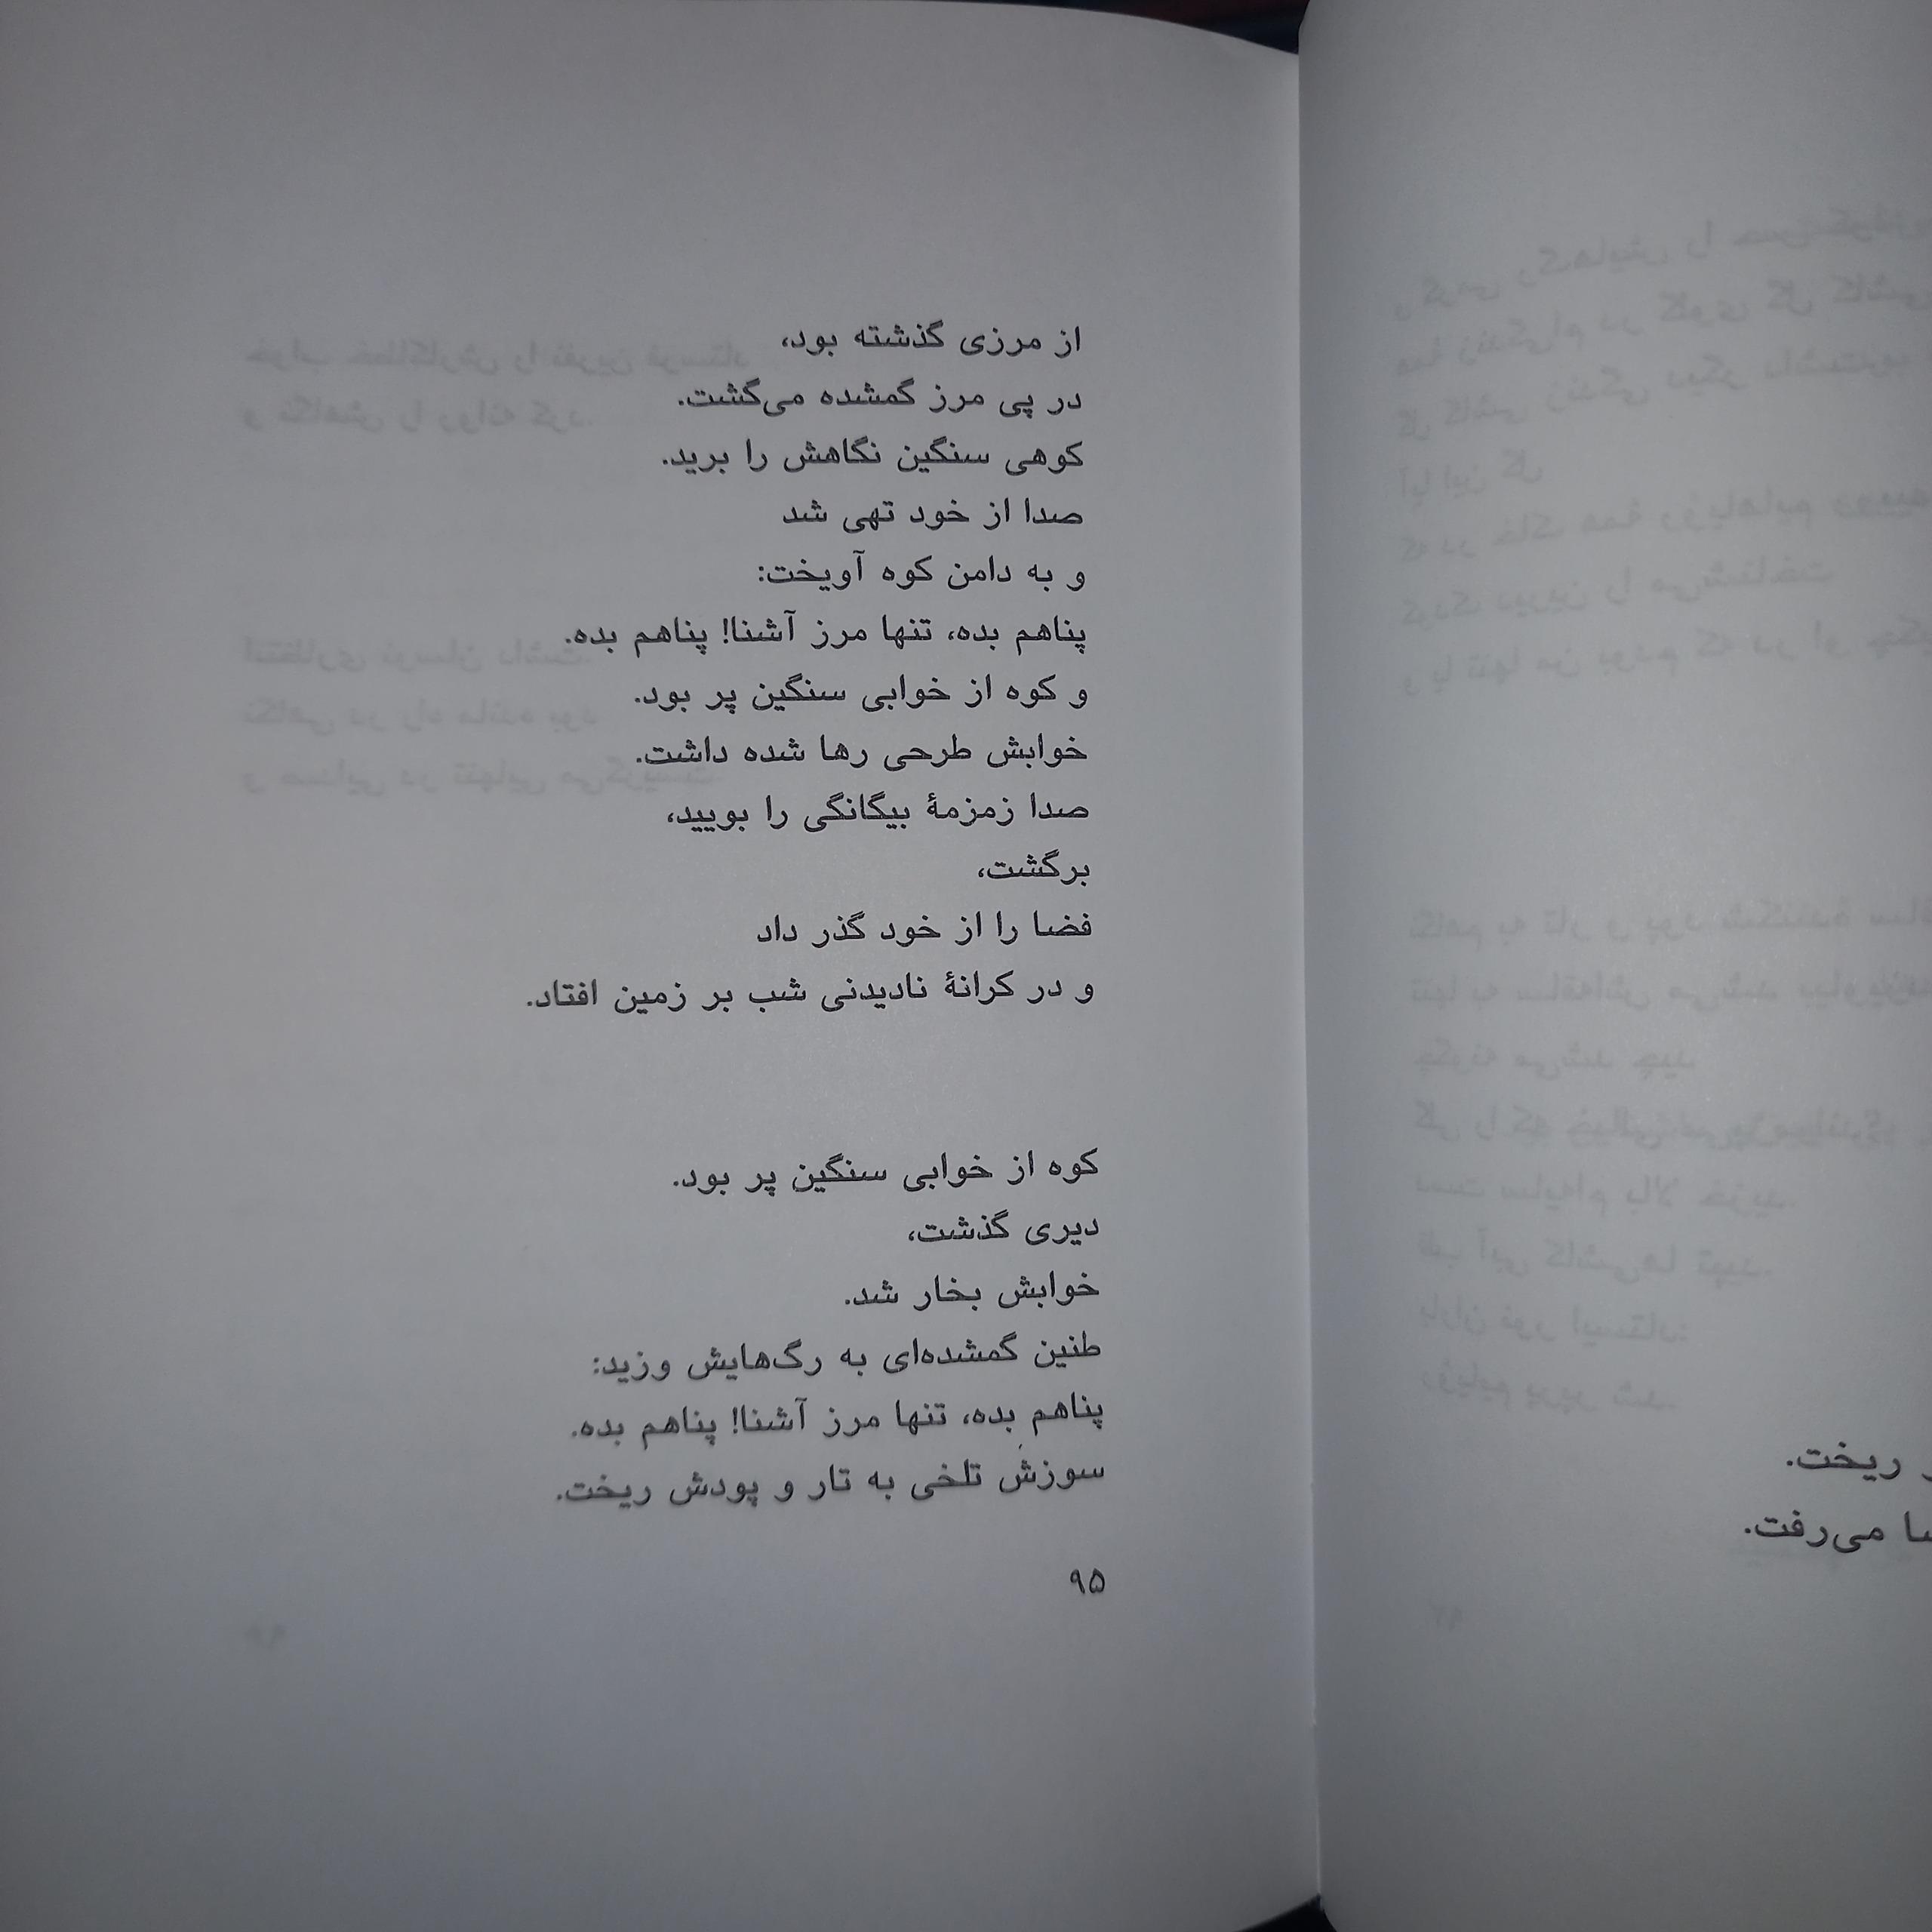 از مرزی گذشته بود،
در پی مرز گمشده می‌گشت.
کوهی سنگین نگاهش را برید.
صدا از خود تهی شد
و به دامن کوه آویخت:
پناهم بده، تنها مرز آشنا! پناهم بده.
و کوه از خوابی سنگین پر بود.
خوابش طرحی رها شده داشت.
صدا زمزمهٔ بیگانگی را بویید،
برگشت،
فضا را از خود گذر داد
و در کرانهٔ نادیدنی شب بر زمین افتاد.
کوه از خوابی سنگین پر بود.
دیری گذشت،
خوابش بخار شد.
طنین گمشده‌ای به رگ‌هایش وزید:
پناهم بده، تنها مرز آشنا! پناهم بده.
سوزش تلخی به تار و پودش ریخت.
۹۵
ریخت.
می‌رفت.